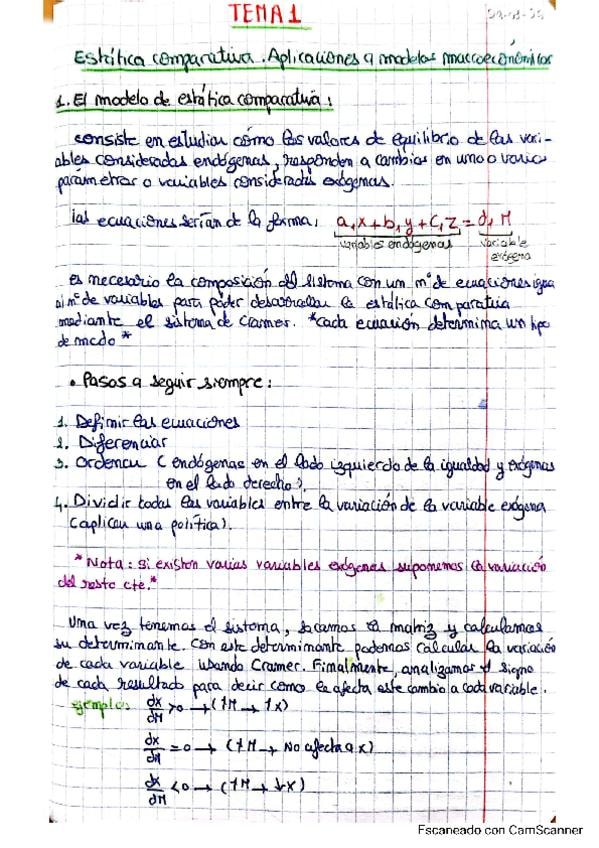 TEMA 1
Estática comparativa. Aplicaciones a modelos macroeconómicos
1. El modelo de estática comparativa:
consiste en estudiar cómo los valores de equilibrio de las vari-
ables consideradas endógenas, responden a cambios en uno o varios
parámetros o variables consideradas exógenas.
las ecuaciones serían de la forma: a₁x + b₁y + c₁z = d₁M
variables endógenas variable
exógena
es necesario la composición del sistema con un nº de ecuaciones igual
al nº de variables para poder desarrollar la estática comparativa
mediante el sistema de Cramer. *cada ecuación determina un tipo
de mcdo*
• Pasos a seguir siempre:
1. Definir las ecuaciones
2. Diferenciar
3. Ordenar (endógenas en el lado izquierdo de la igualdad y exógenas
en el lado derecho).
4. Dividir todas las variables entre la variación de la variable exógena
(aplicar una política).
*Nota: si existen varias variables exógenas suponemos la variación
del resto cte.*
Una vez tenemos el sistema, sacamos la matriz y calculamos
su determinante. Con este determinante podemos calcular la variación
de cada variable usando Cramer. Finalmente, analizamos el signo
de cada resultado para decir como le afecta este cambio a cada variable.
ejemplo: dx/dM > 0 → (↑M → ↑x)
dx/dM = 0 → (↑M → No afecta a x)
dx/dM < 0 → (↑M → ↓x)
Escaneado con CamScanner